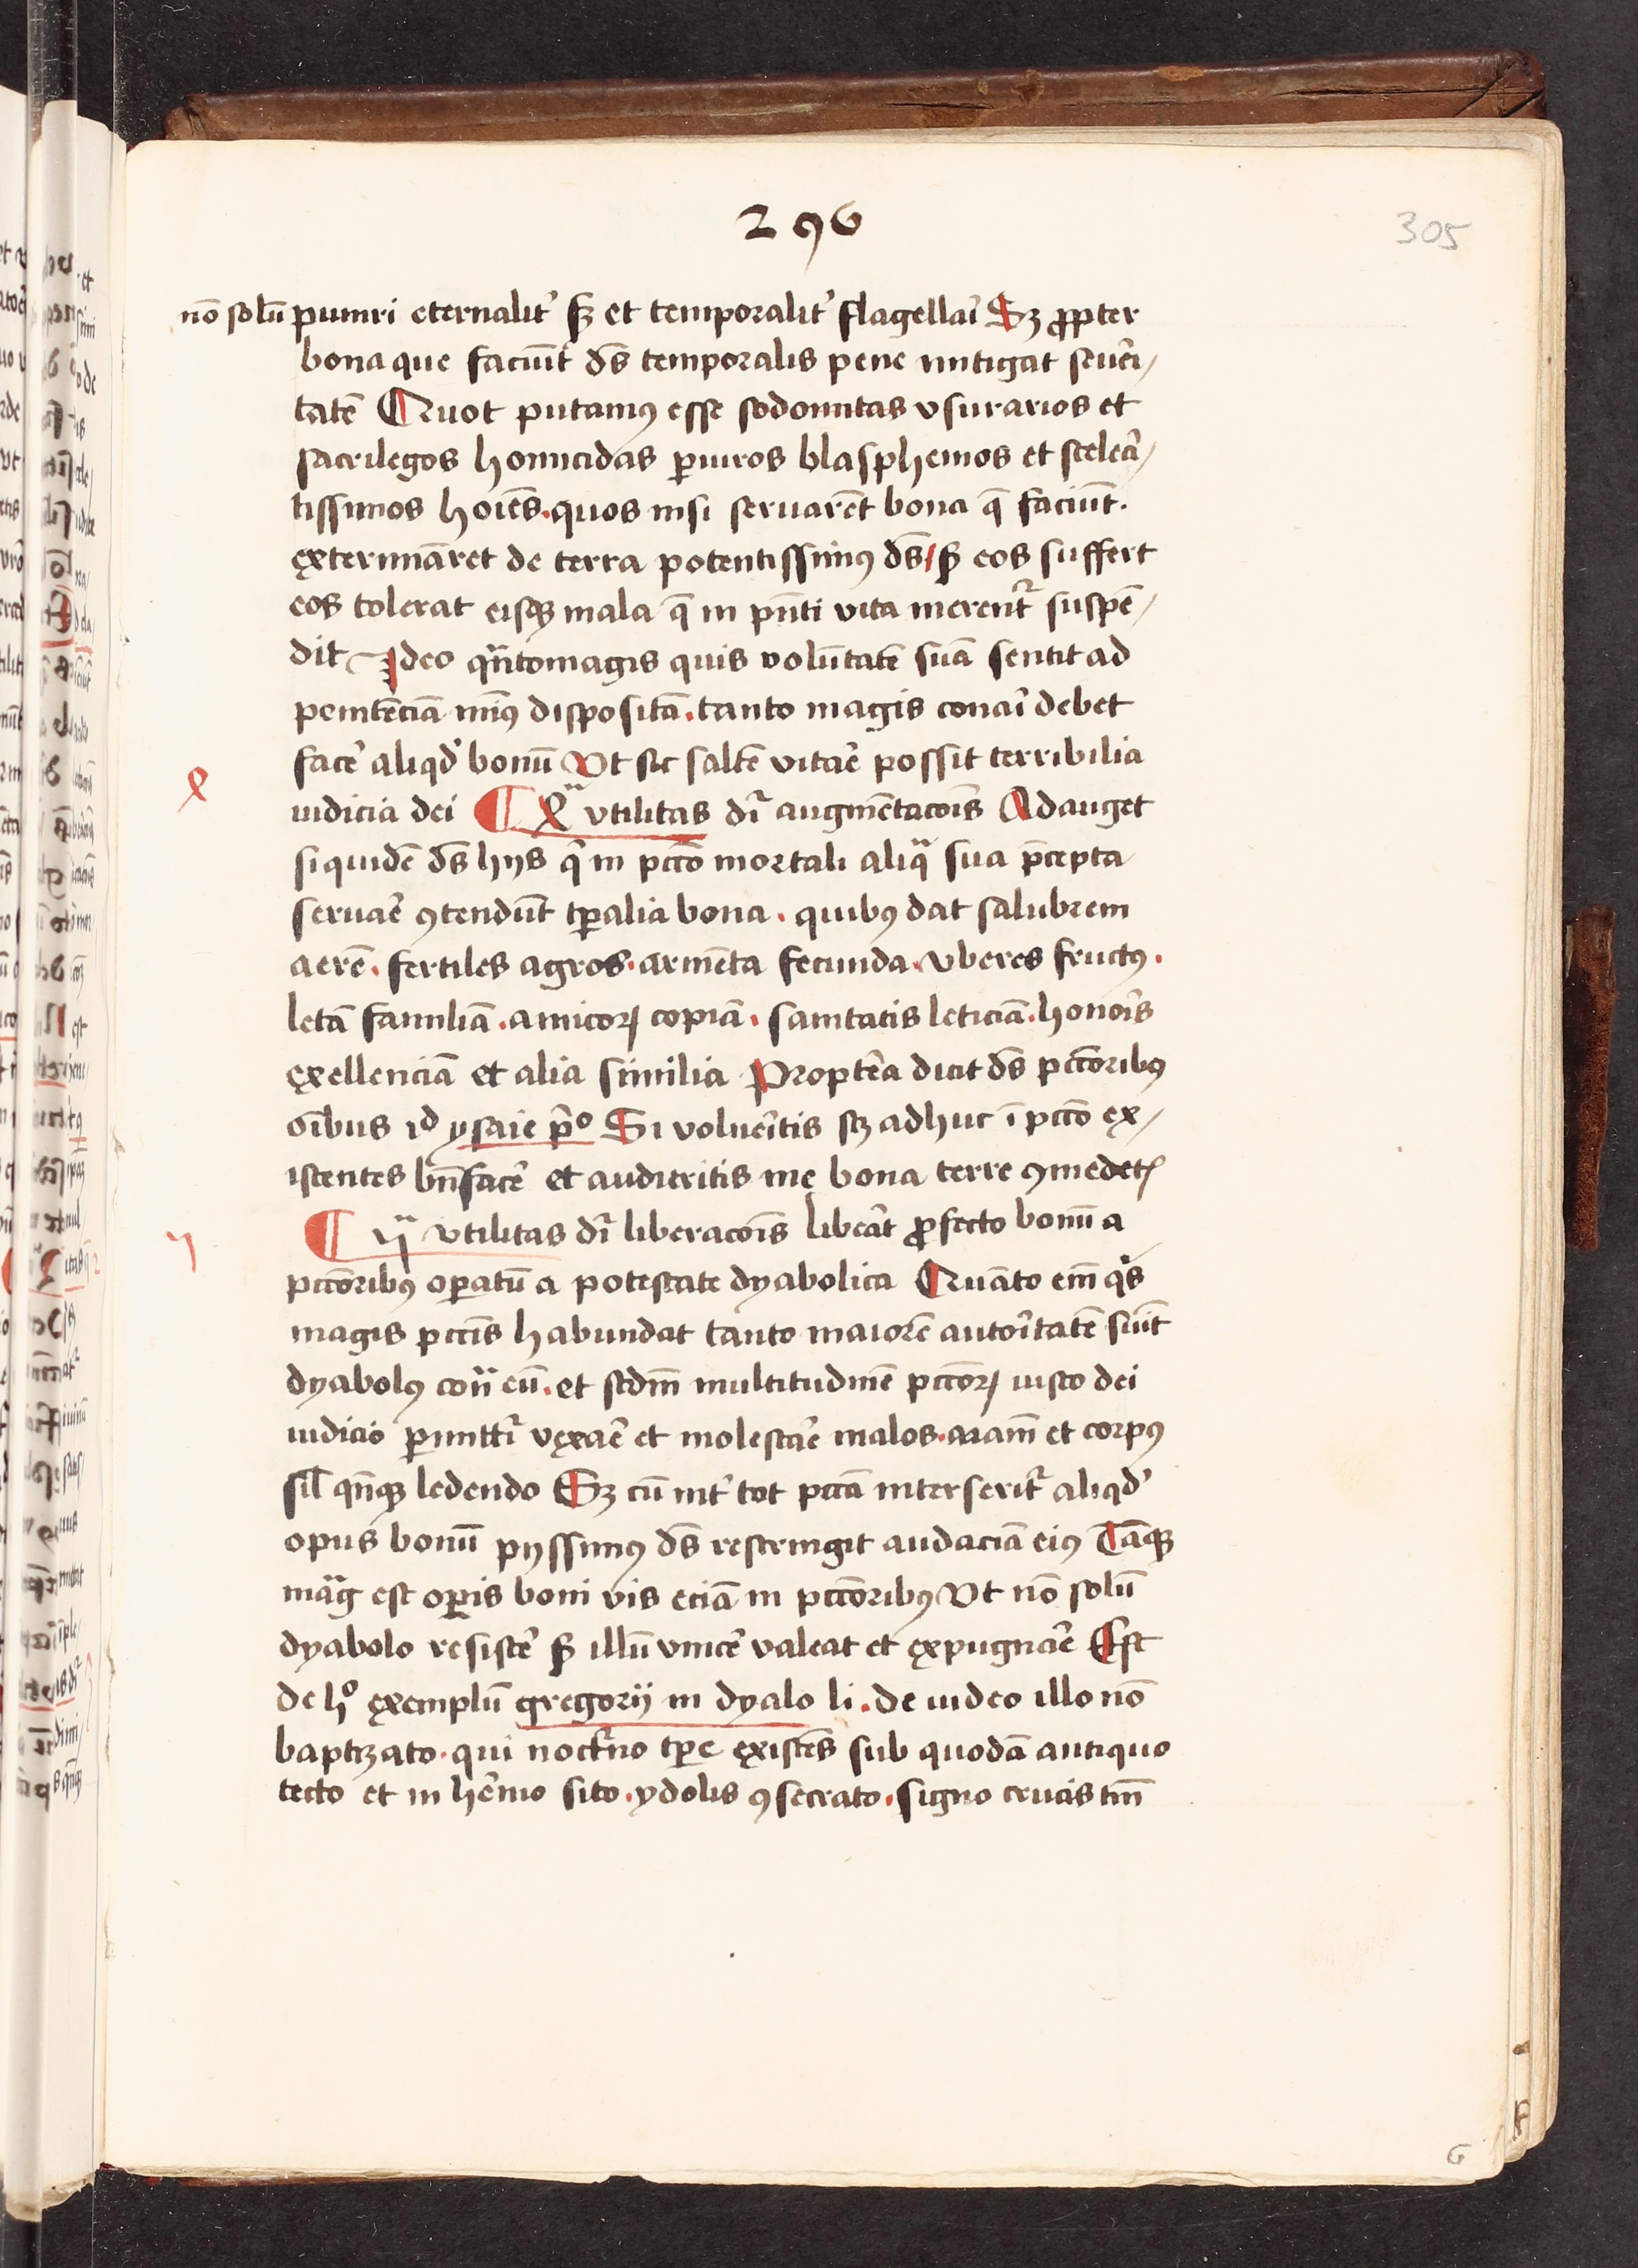 296
305
nō solū puniri eternalit̾ sꝫ et temporalit̾ flagellar̄ Sꝫ ꝓpter
bona que faciūt dn̄s temporalis pene mitigat seueri⸗
tatē Quot putamꝰ esse sodomitas vsurarios et
sacrilegos homicidas ꝑiuros blasphemos et scelera⸗
tissimos hoīes. quos nisi seruarēt bona q̄ faciūt.
exterminār̄et de terra potentissimꝰ ds̄ / sꝫ eos suffert
eos tolerat eisqꝫ mala q̄ in pn̄ti vita merent᷑ suspē⸗
dit Ideo qn̄tomagis quis volūtatē suā sentit ad
penitēciā minꝰ dispositā. tanto magis conar̄i debet
facē aliqd̾ bonū Vt sic saltē vitar̄e possit terribilia
x
iudicia dei ¶ Xᵃ vtilitas dr̄ augmētacōis Adauget
siquidē ds̄ hijs q̄ in pctō mortali aliqᵃ sua p̄cepta
seruar̄e ꝯtendūt tꝑalia bona. quibꝰ dat salubrem
aerē. fertiles agros. armēta fecunda. vberes fructꝰ.
letā familiā. amicoꝝ copiā. sanitatis leticiā. honoris
exellenciā et alia similia Proptēa dicit ds̄ pctōribꝰ
oībus id ysaie pᵒ Si volueritis sꝫ adhuc ī pctō ex⸗
istentes bn̄facē et audieritis me bona terre ꝯmedetꝭ
y
¶ yᵃ vtilitas dr̄ liberacōis liberat ꝓfecto bonū a
pctōribꝰ oꝑatū a potestate dyabolica Quāto em̄ qⁱs
magis pctīs habundat tanto maiorē autoritatē sūit
dyabolꝰ conᵃ eū. et scdm̄ multitudinē pctōꝝ iusto dei
iudicio ꝑmittit᷑ vexar̄e et molestar̄e malos. aīam et corpꝰ
sil̄ qn̄qꝫ ledendo Sꝫ cū int̾ tot pctā interserit᷑ aliqd̾
opus bonū pijssimꝰ ds̄ restringit audaciā eiꝰ Tāqꝫ
magᵃ est oꝑis boni vis eciā in pctōribꝰ Vt nō solū
dyabolo resistē sꝫ illū vincē valeat et expugnar̄e Est
de hᵒ exemplū gregorij in dyalo li. de iudeo illo nō
baptizato. qui noct᷑no tꝑe existēs sub quodā antiquo
tecto et in hēmo sito. ydolis ꝯsecrato. signo crucis tm̄
G